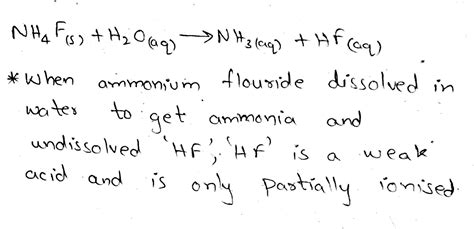 NH₄F(s) + H₂O(aq) → NH₃(aq) + HF(aq)
* When ammonium flouride dissolved in
water to get ammonia and
undissolved 'HF', 'HF' is a weak
acid and is only partially ionised.